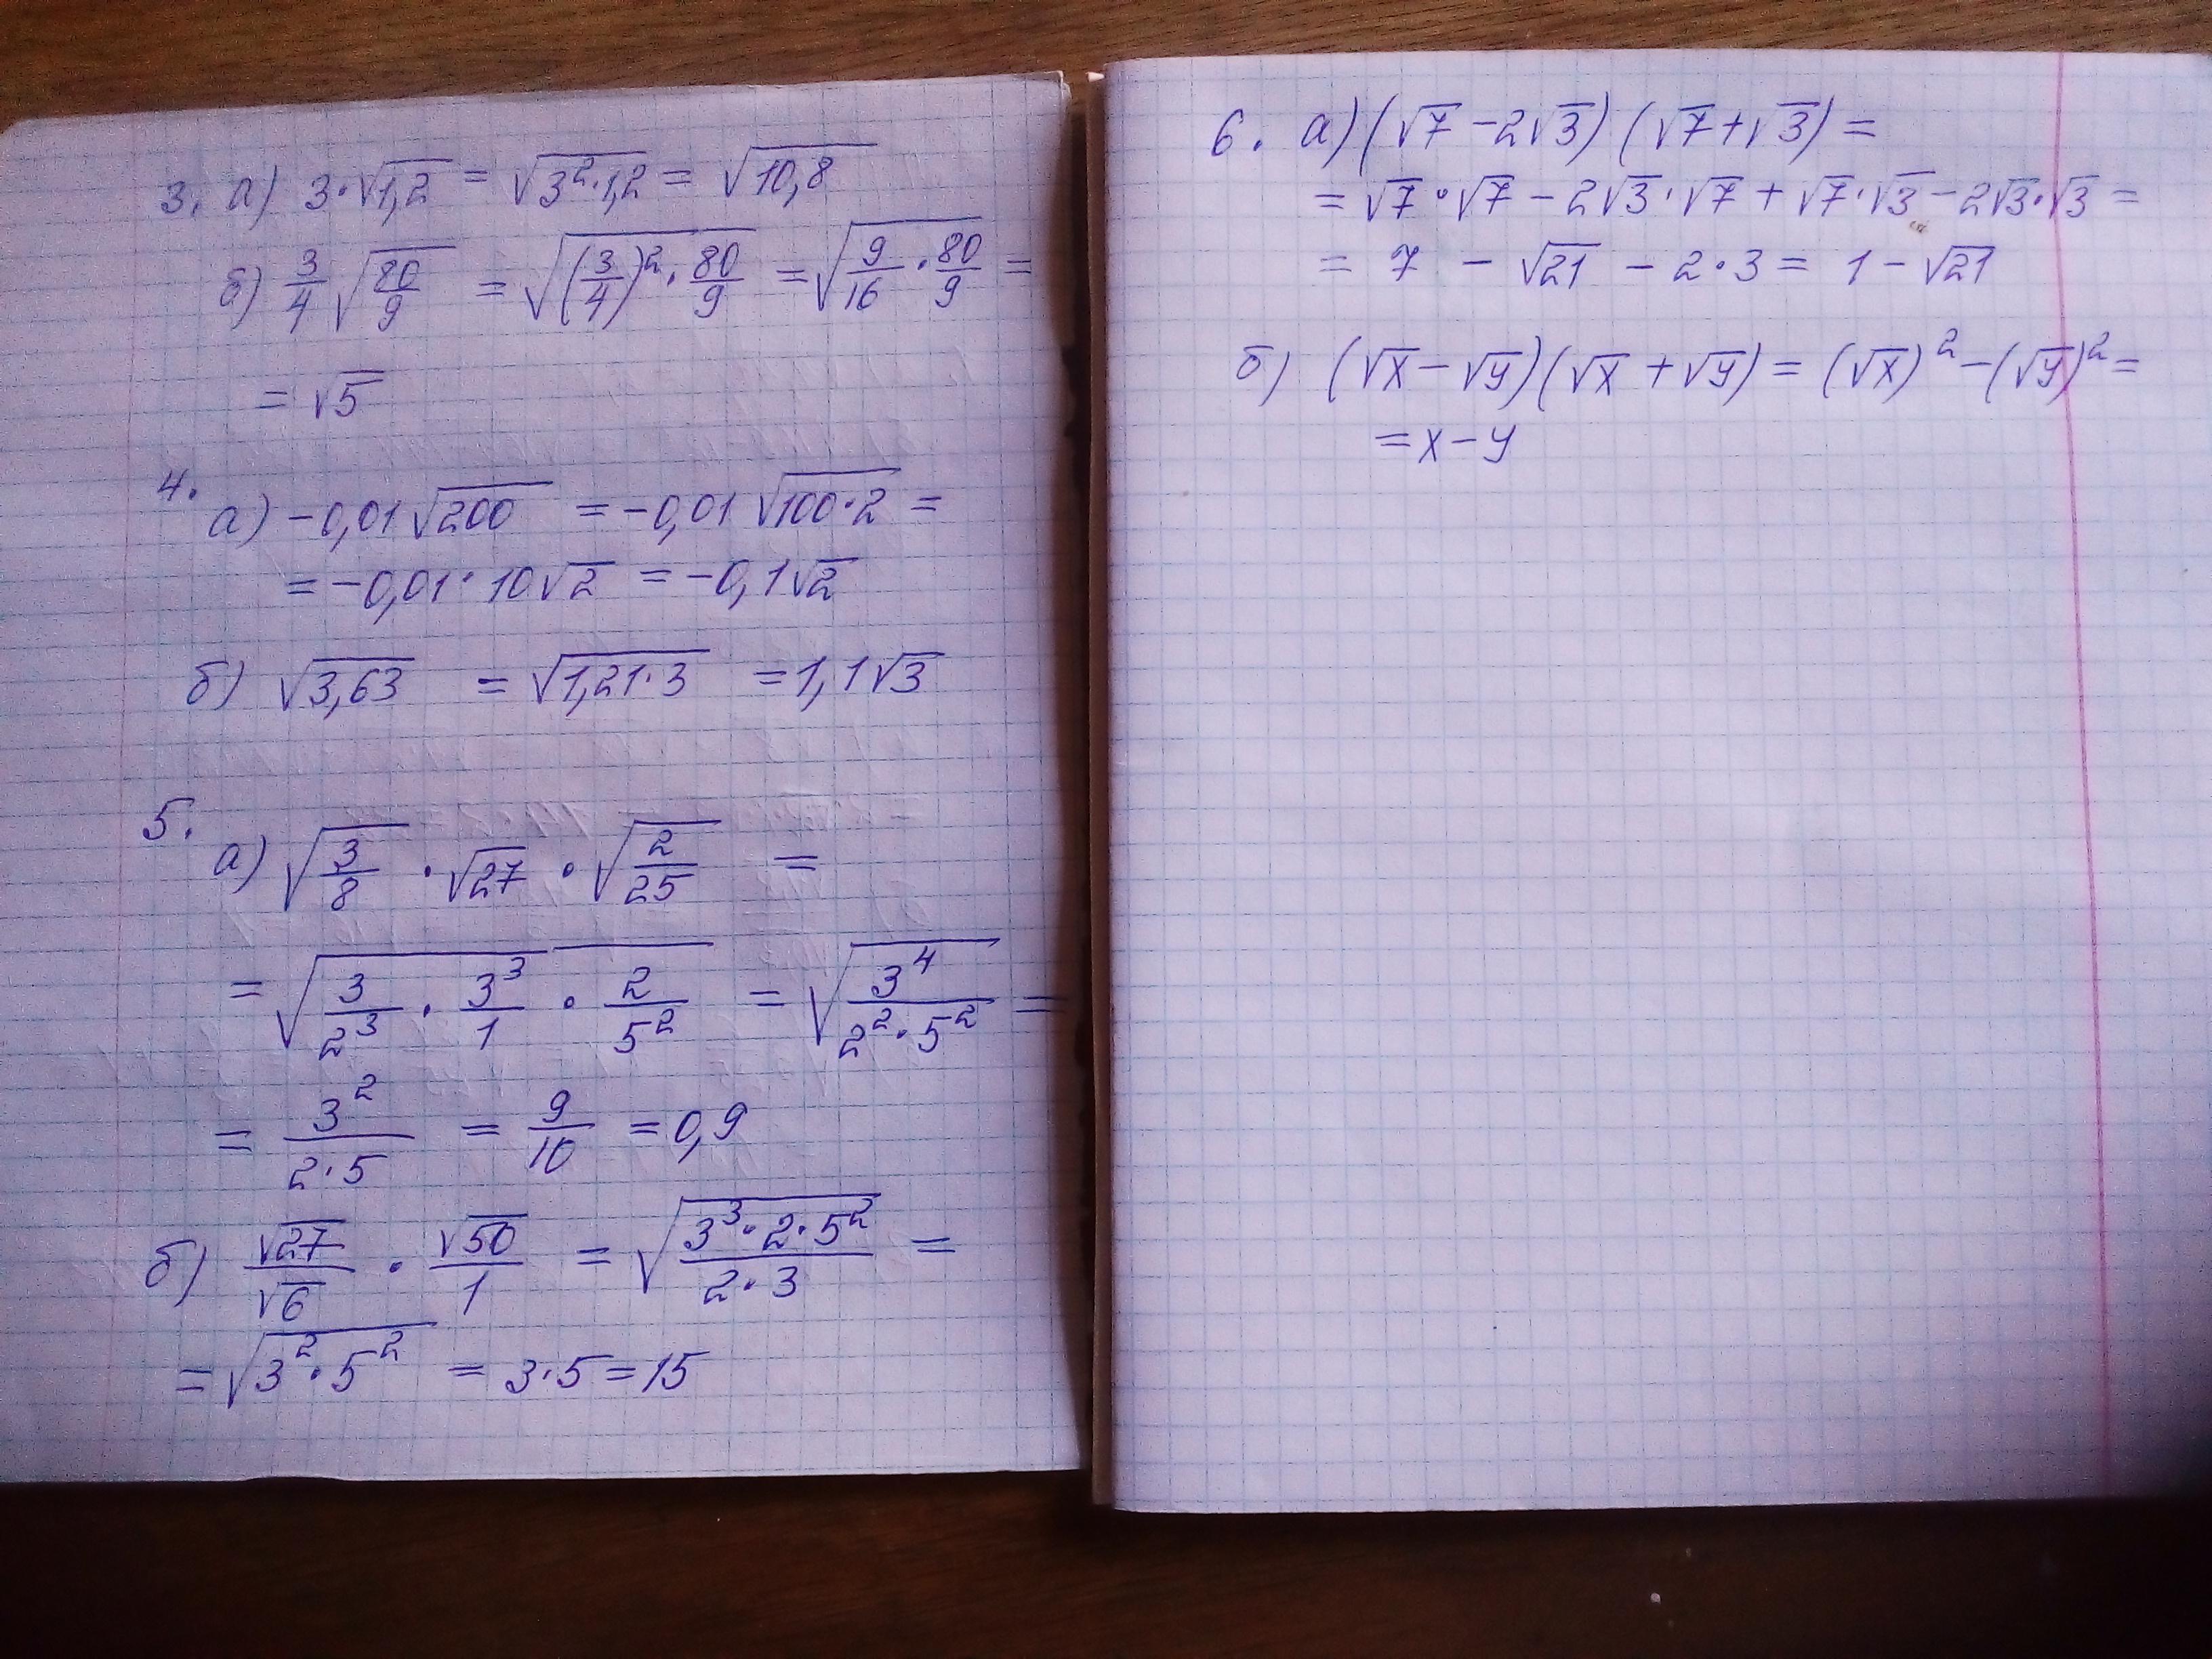 3. а) 3·√1,2 = √3²·1,2 = √10,8
б) 3/4 √80/9 = √(3/4)²·80/9 = √9/16·80/9 =
= √5
4.
а) -0,01√200 = -0,01√100·2 =
= -0,01·10√2 = -0,1√2
б) √3,63 = √1,21·3 = 1,1√3
5.
а) √3/8 · √27 · √2/25 =
= √3/2³ · 3³/1 · 2/5² = √3⁴/2²·5² =
= 3²/2·5 = 9/10 = 0,9
б) √27/√6 · √50/1 = √3³·2·5²/2·3 =
= √3²·5² = 3·5 = 15
6. а) (√7 - 2√3) (√7 + √3) =
= √7·√7 - 2√3·√7 + √7·√3 - 2√3·√3 =
= 7 - √21 - 2·3 = 1 - √21
б) (√x - √y)(√x + √y) = (√x)² - (√y)² =
= x - y